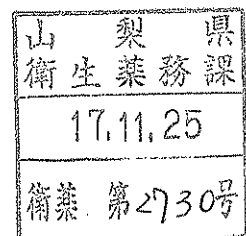 山梨県
衛生薬務課
17.11.25
衛薬 第2730号